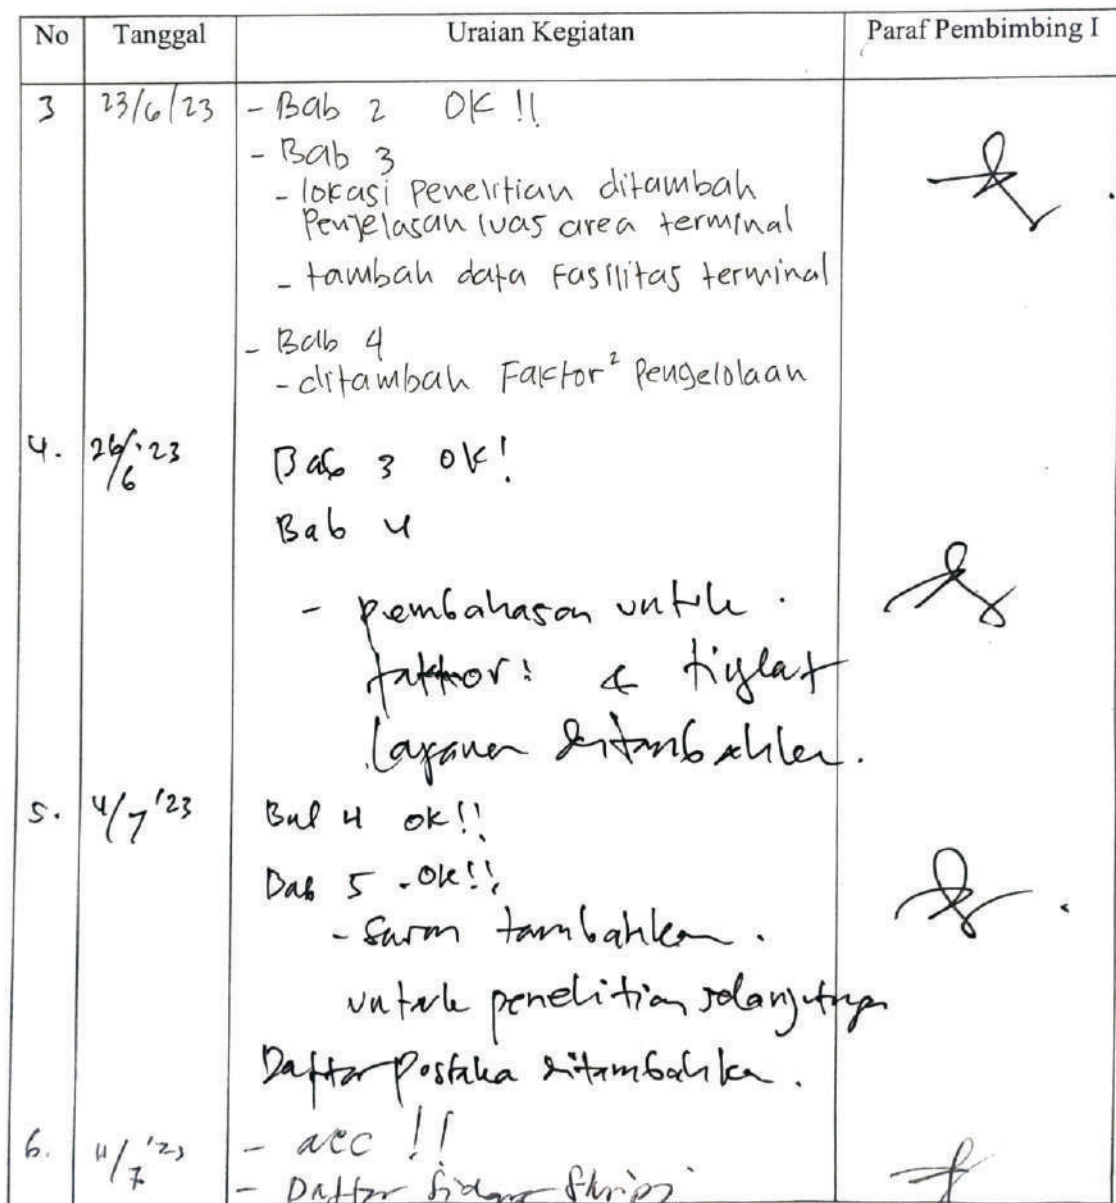 No Tanggal Uraian Kegiatan Paraf Pembimbing I
3 23/6/23 - Bab 2 OK !!
- Bab 3
- lokasi Penelitian ditambah
Penjelasan luas area terminal
- tambah data Fasilitas terminal
- Bab 4
- ditambah Faktor² Pengelolaan
4. 26/6 '23 Bab 3 ok!
Bab 4
- pembahasan untuk
faktor: & tingkat
layanan ditambahkan.
5. 4/7 '23 Bab 4 ok!!
Bab 5 . Ok!!
- Saran tambahkan .
untuk penelitian selanjutnya
Daftar Pustaka ditambahkan .
6. 11/7 '23 - acc !!
- Daftar Sidang Skripsi